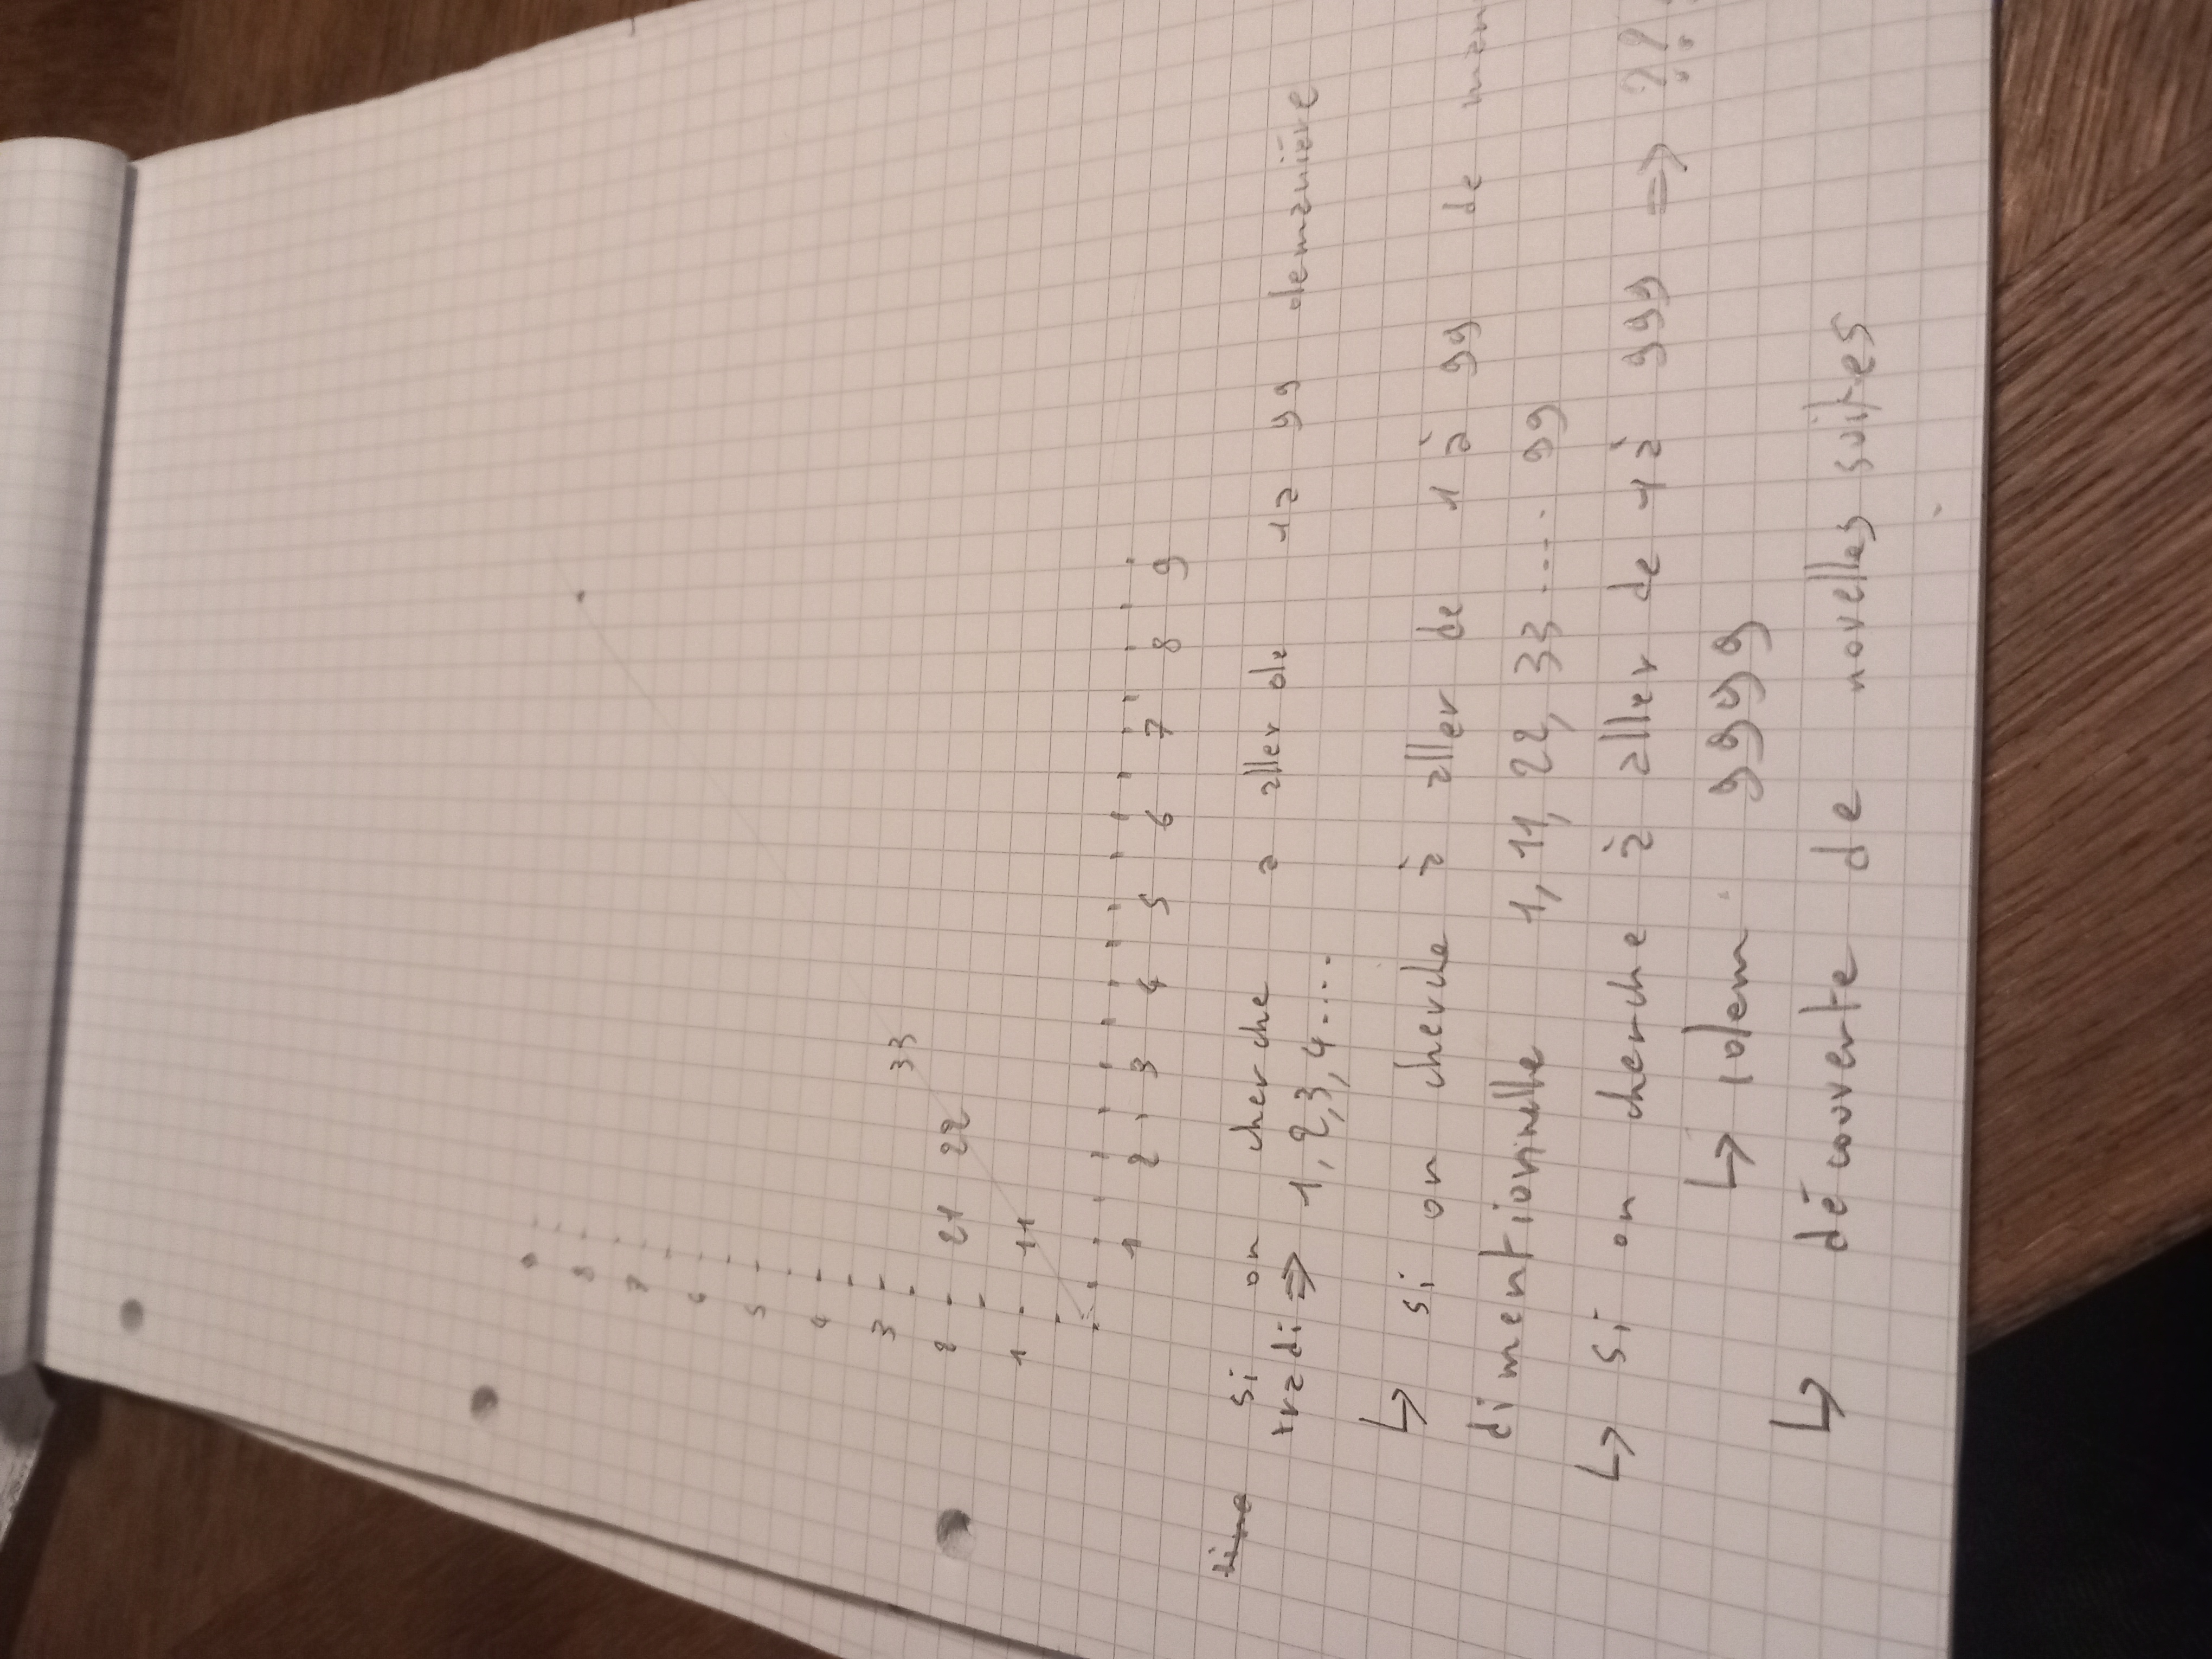 8
7
6
5
4
3 33
2 21 22
1 11
1 2 3 4 5 6 7 8 9
si on cherche a aller de 1 a 99 de manière
tradi => 1, 2, 3, 4....
↳ si on cherche à aller de 1 à 99 de man
dimentionnelle 1, 11, 22, 33..... 99
↳ si on cherche à aller de 1 à 999 => ??
↳ idem 9999
↳ découverte de novelles suites